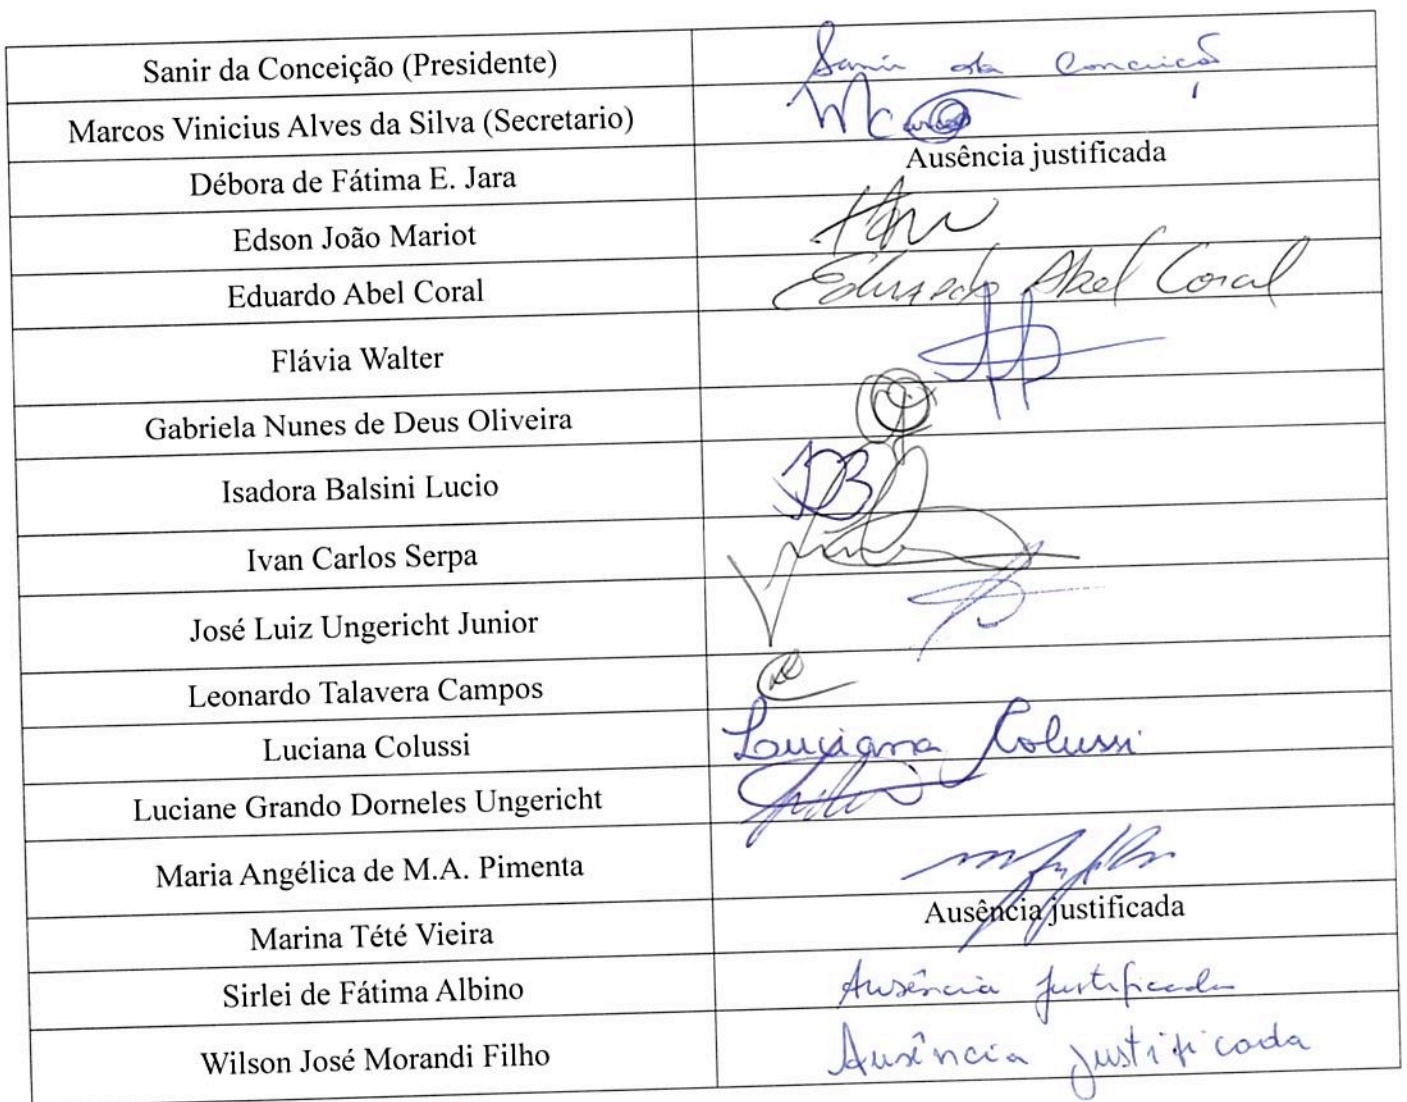 Sanir da Conceição (Presidente) Sanir da Conceição
Marcos Vinicius Alves da Silva (Secretario) Marcos
Débora de Fátima E. Jara Ausência justificada
Edson João Mariot
Eduardo Abel Coral Eduardo Abel Coral
Flávia Walter
Gabriela Nunes de Deus Oliveira
Isadora Balsini Lucio
Ivan Carlos Serpa
José Luiz Ungericht Junior
Leonardo Talavera Campos
Luciana Colussi Luciana Colussi
Luciane Grando Dorneles Ungericht
Maria Angélica de M.A. Pimenta
Marina Tété Vieira Ausência justificada
Sirlei de Fátima Albino Ausência justificada
Wilson José Morandi Filho Ausência justificada